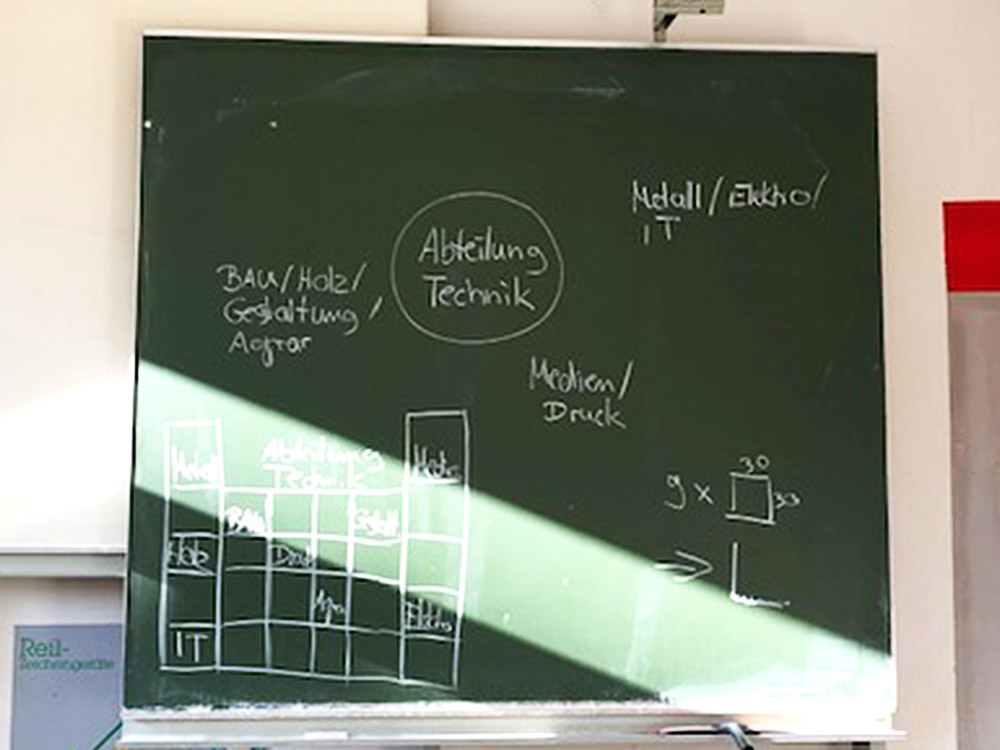 Metall / Elektro /
IT
Abteilung
Technik
BAU / Holz /
Gestaltung /
Agrar
Medien /
Druck
Abteilung
Technik
Metall
BAU
Gestalt.
Holz
Druck
Agrar
Elektro
IT
30
9 x
30
Reil-
Zeichengeräte